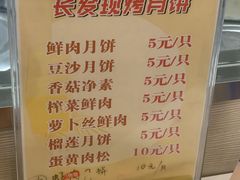 长发现烤月饼
鲜肉月饼 5元/只
豆沙月饼 5元/只
香菇净素 5元/只
榨菜鲜肉 5元/只
萝卜丝鲜肉 5元/只
榴莲月饼 5元/只
蛋黄肉松 10元/只
10元/只